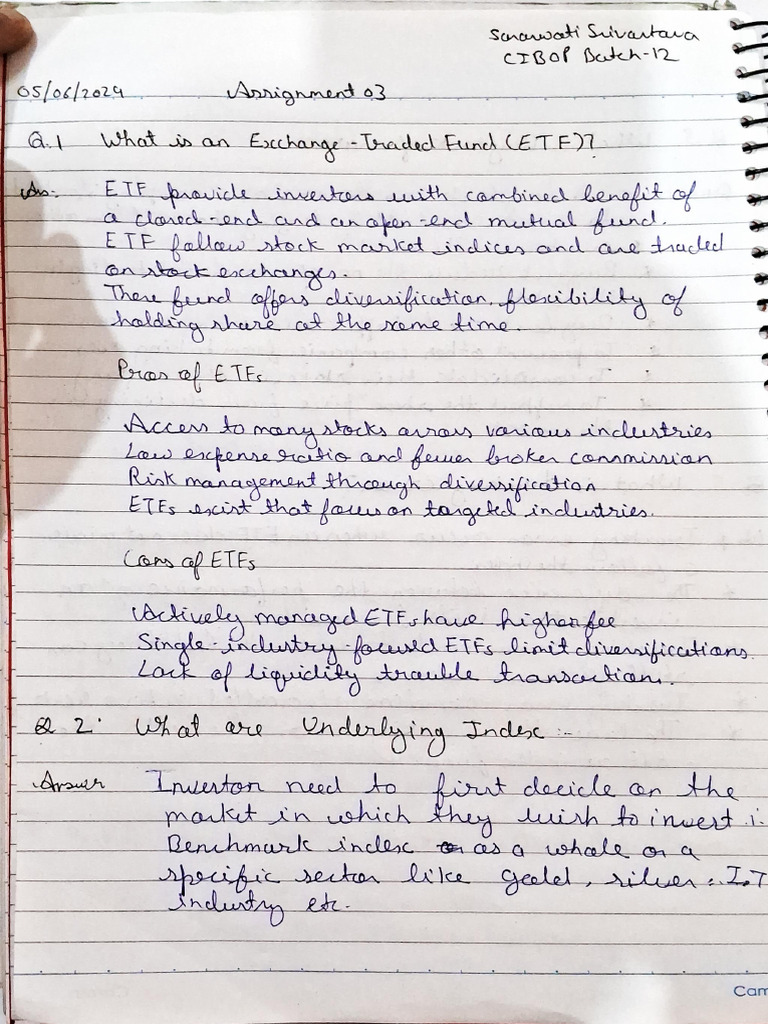 Sararwati Srivastava
CIBOP Batch-12
05/06/2024 Assignment 03
Q.1 What is an Exchange-Traded Fund (ETF)?
Ans:- ETF provide investors with combined benefit of
a closed-end and an open-end mutual fund.
ETF follow stock market indices and are traded
on stock exchanges.
These fund offers diversification, flexibility of
holding share at the same time.
Pros of ETFs
Access to many stocks across various industries
Low expense ratio and fewer broker commission
Risk management through diversification
ETFs exist that focus on targeted industries.
Cons of ETFs
Actively managed ETFs have higher fee
Single-industry-focused ETFs limit diversifications.
Lack of liquidity trouble transaction.
Q 2. What are Underlying Index:-
Answer Investor need to first decide on the
market in which they wish to invest i.
Benchmark index as a whole or a
specific sector like gold, silver, I.T
industry etc.
Cam